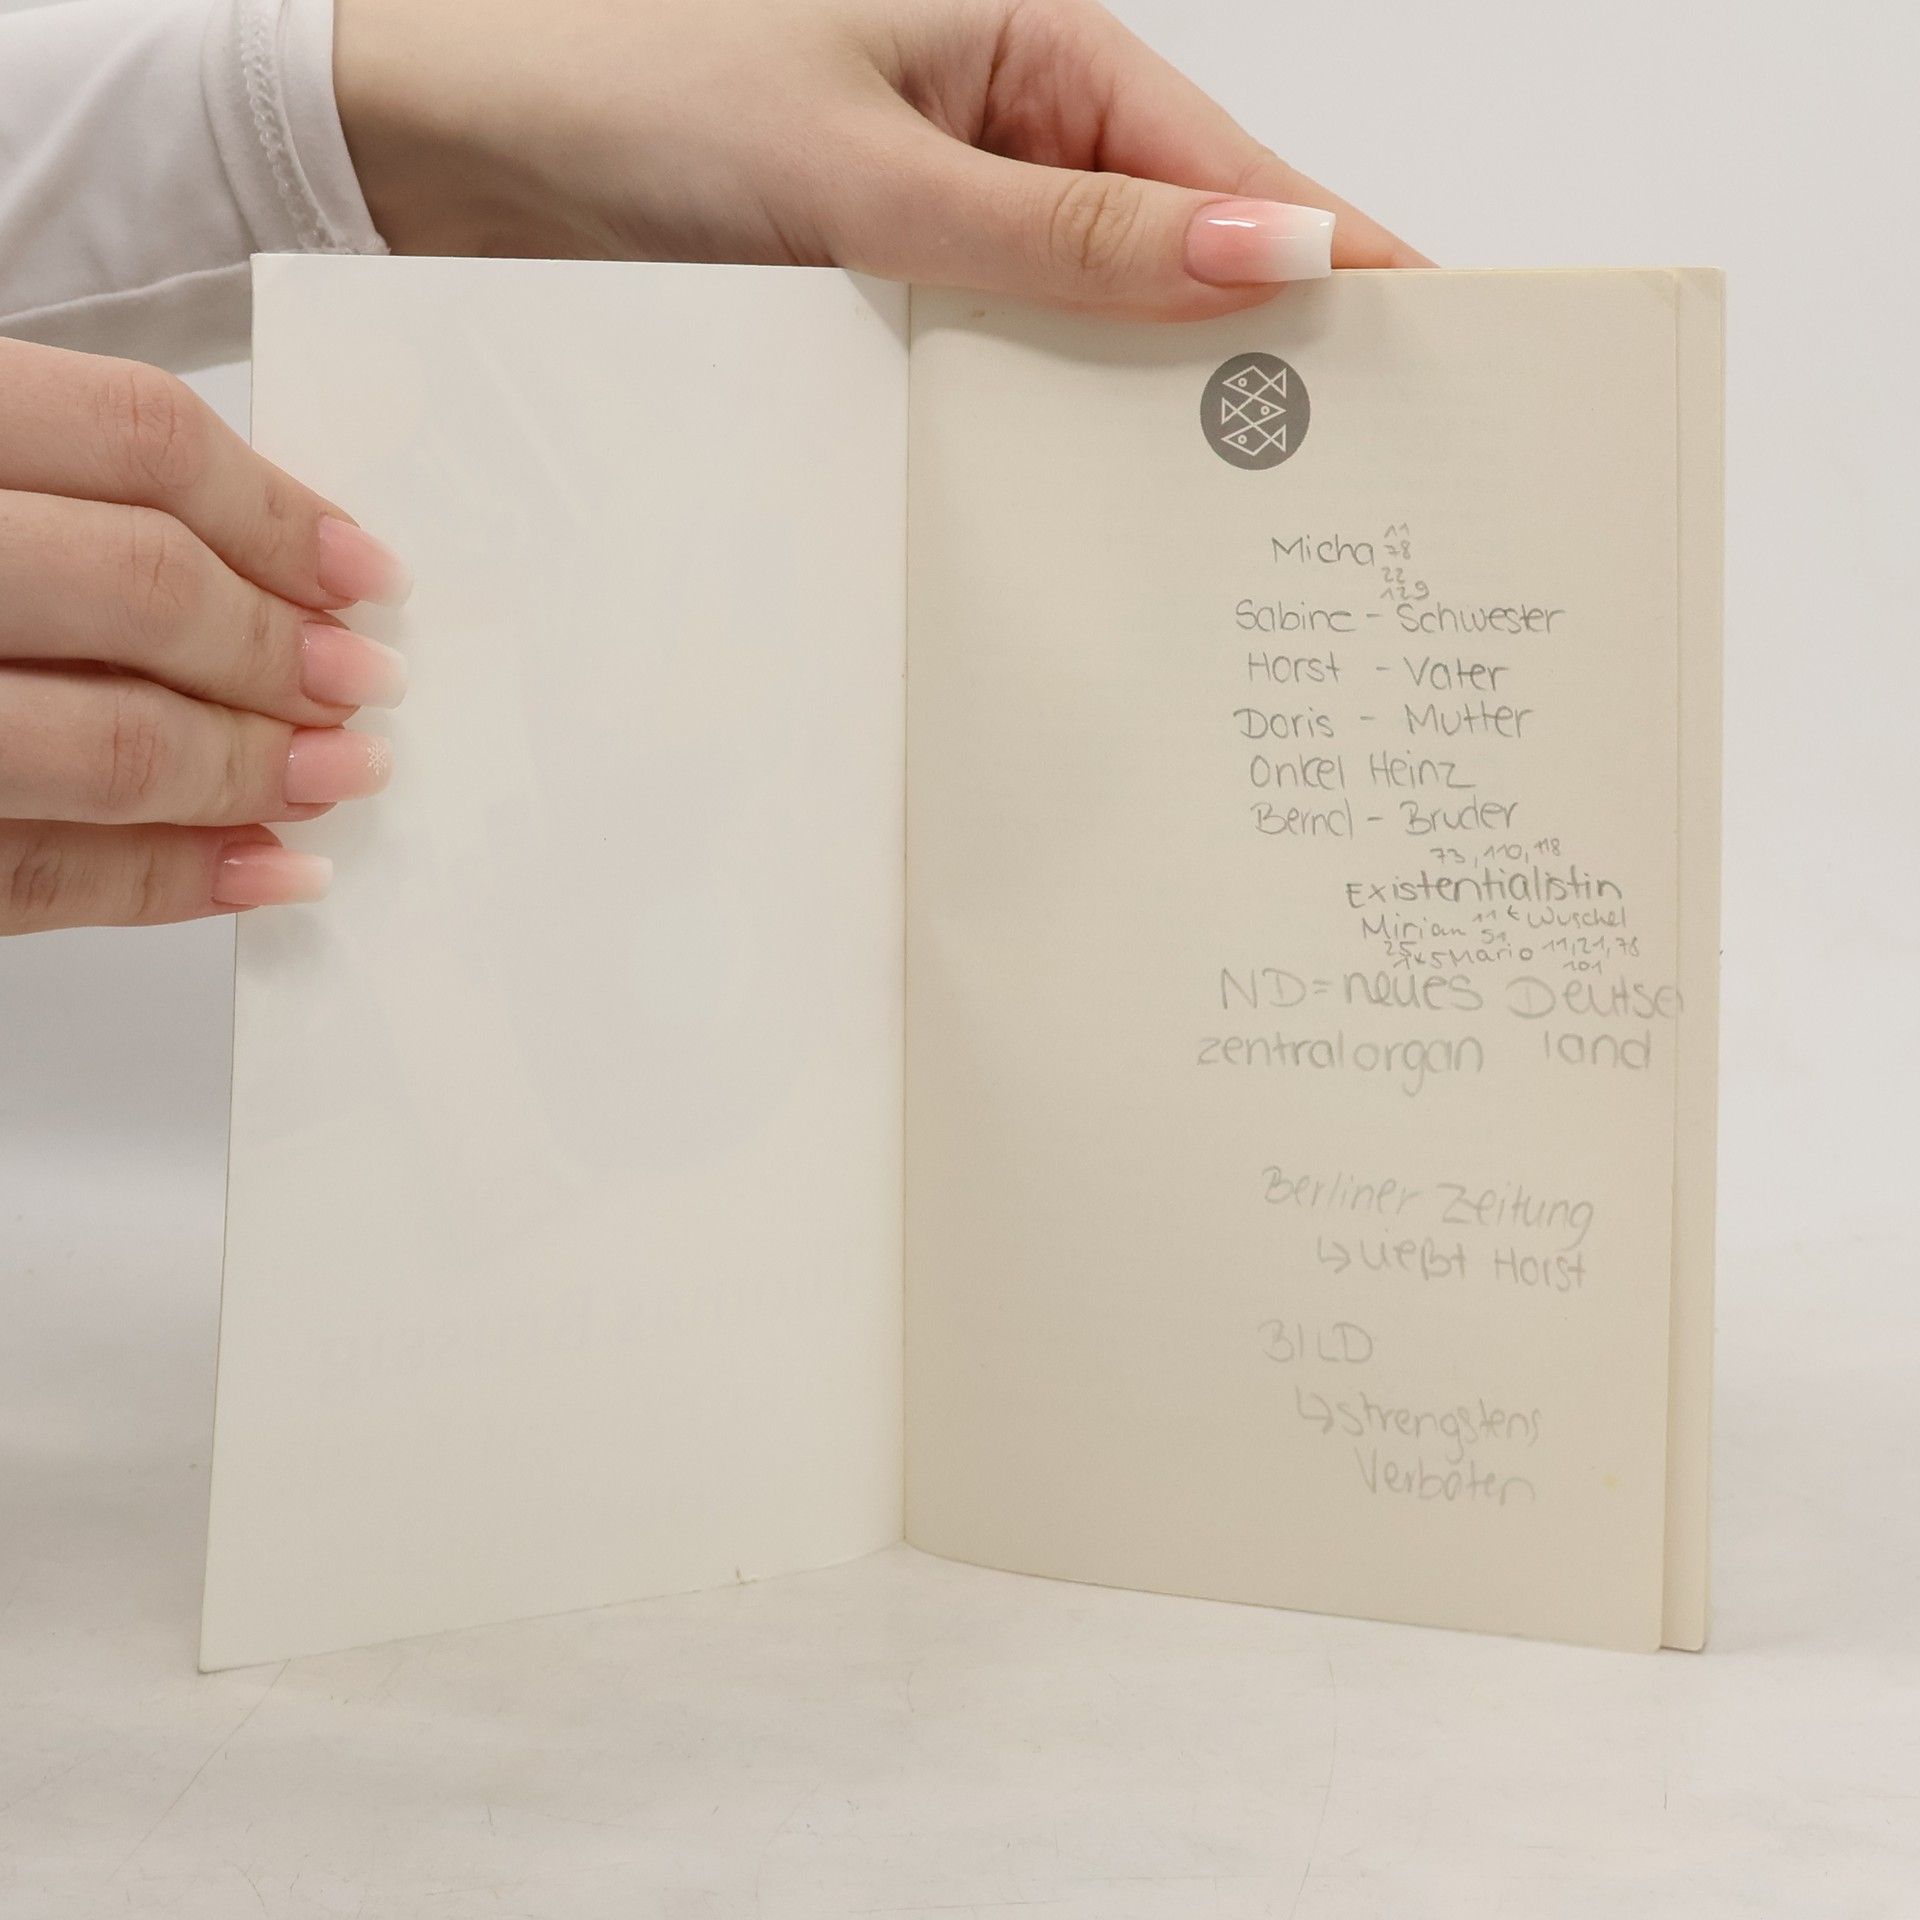 Micha 11
78
22
129
Sabine - Schwester
Horst - Vater
Doris - Mutter
Onkel Heinz
Bernd - Bruder
73, 110, 118
Existentialistin
Miriam 11 Wuschel
25 51 Mario 11, 21, 78
101
ND = neues Deutsch
zentralorgan land
Berliner Zeitung
↳ ließt Horst
BILD
↳ strengstens
Verboten